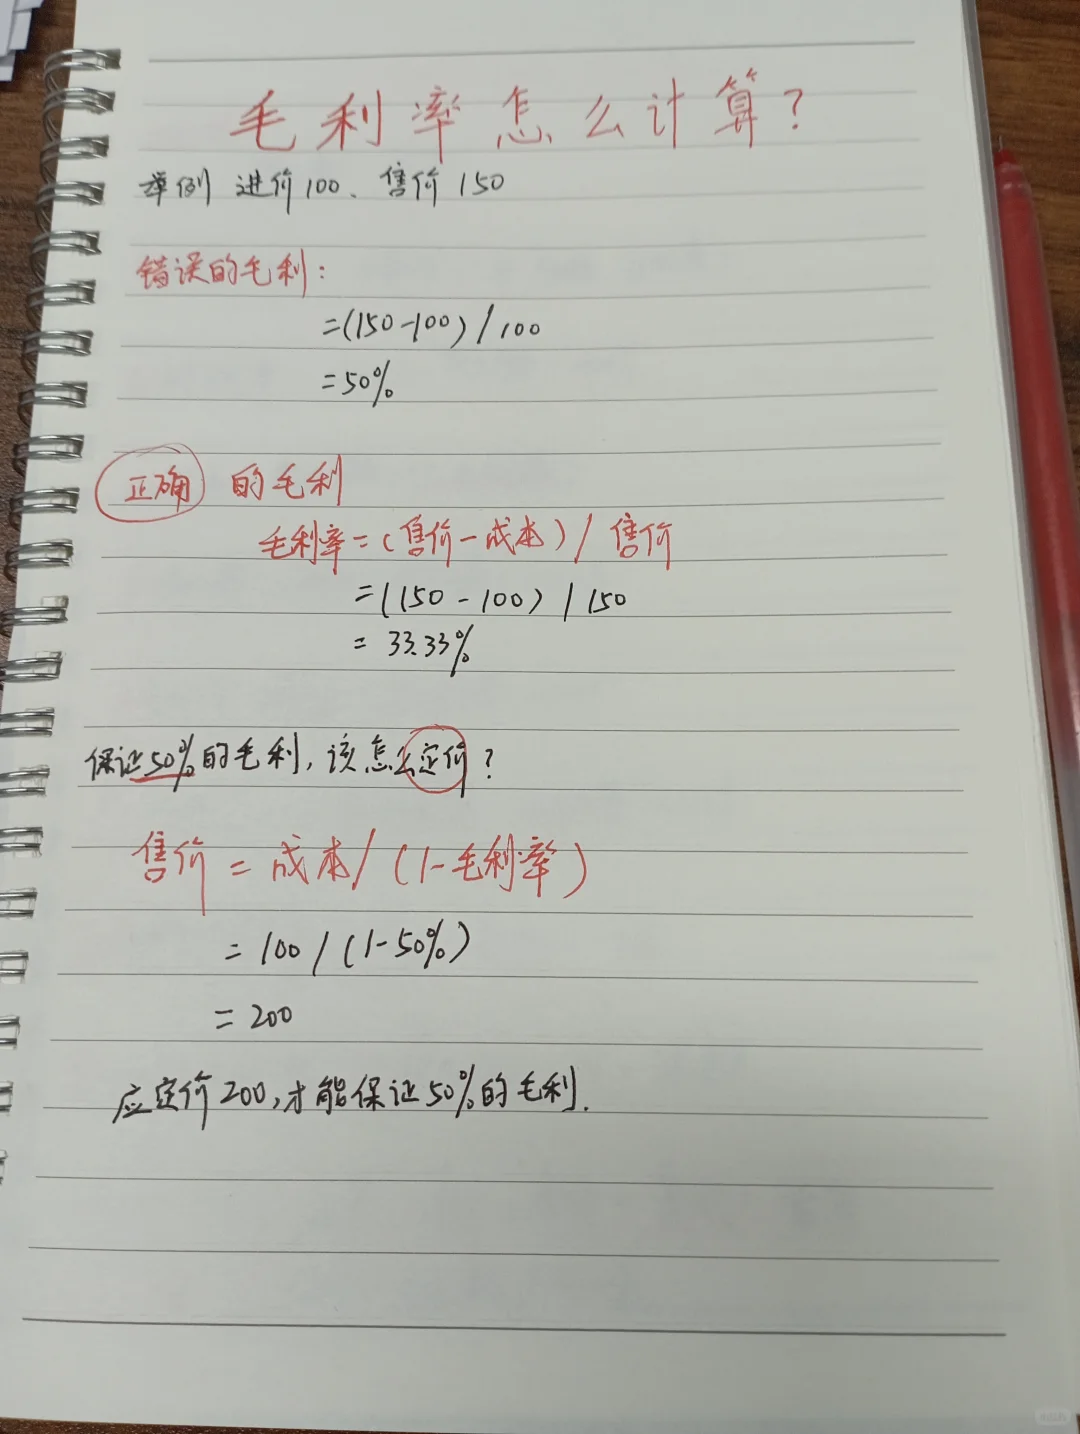 毛利率怎么计算?
举例 进价100、售价150
错误的毛利:
=(150-100)/100
=50%
正确的毛利
毛利率=(售价-成本)/售价
=(150-100)/150
=33.33%
保证50%的毛利,该怎么定价?
售价=成本/(1-毛利率)
=100/(1-50%)
=200
应定价200,才能保证50%的毛利.